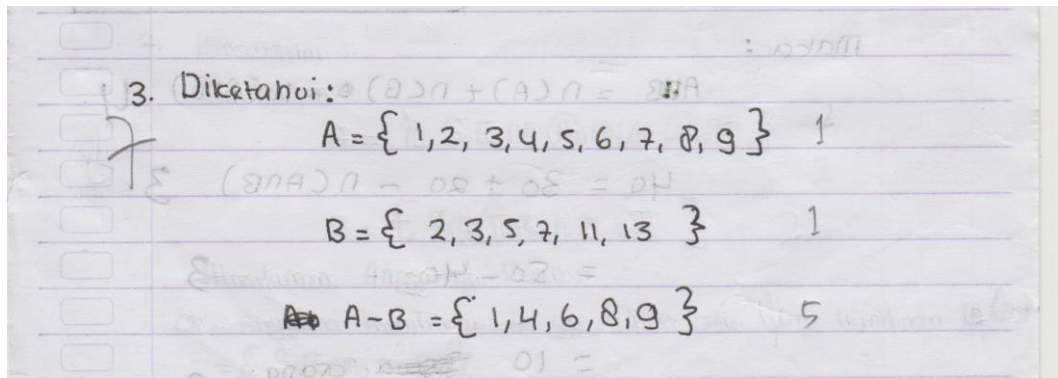 3. Diketahui:
7
A = { 1, 2, 3, 4, 5, 6, 7, 8, 9 } 1
B = { 2, 3, 5, 7, 11, 13 } 1
A-B = { 1, 4, 6, 8, 9 } 5